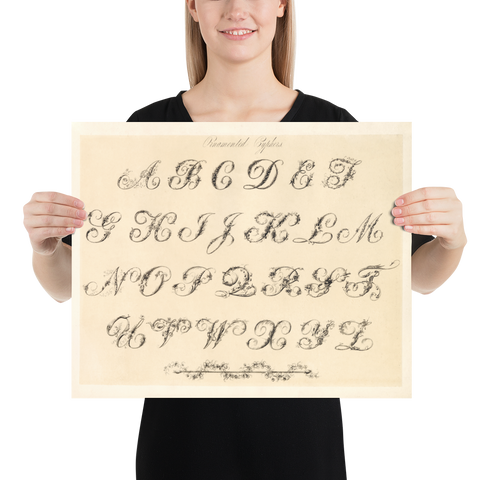 Ornamented Cyphers
A B C D E F
G H I J K L M
N O P Q R S T
U V W X Y Z